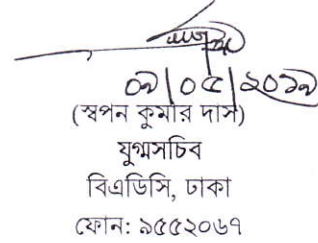 ০৯|০৫|২০১৯
(স্বপন কুমার দাস)
যুগ্মসচিব
বিএডিসি, ঢাকা
ফোন: ৯৫৫২০৬৭